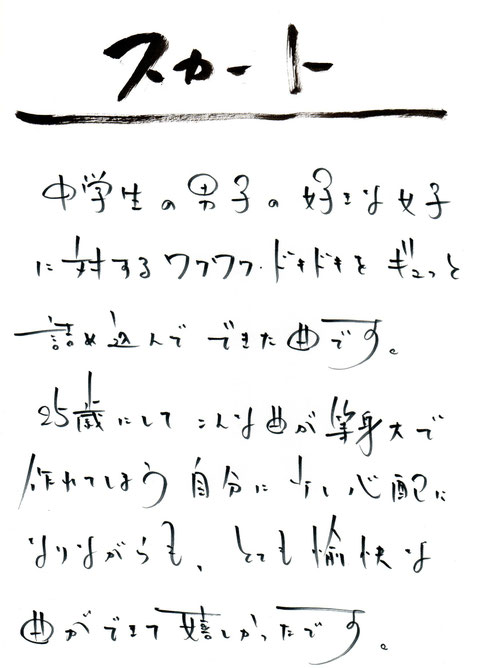 スカート
中学生の男子の好きな女子
に対するワクワク・ドキドキをギュっと
詰め込んでできた曲です。
25歳にしてこんな曲が等身大で
作れてしまう自分に少し心配に
なりながらも、とても愉快な
曲ができて嬉しかったです。